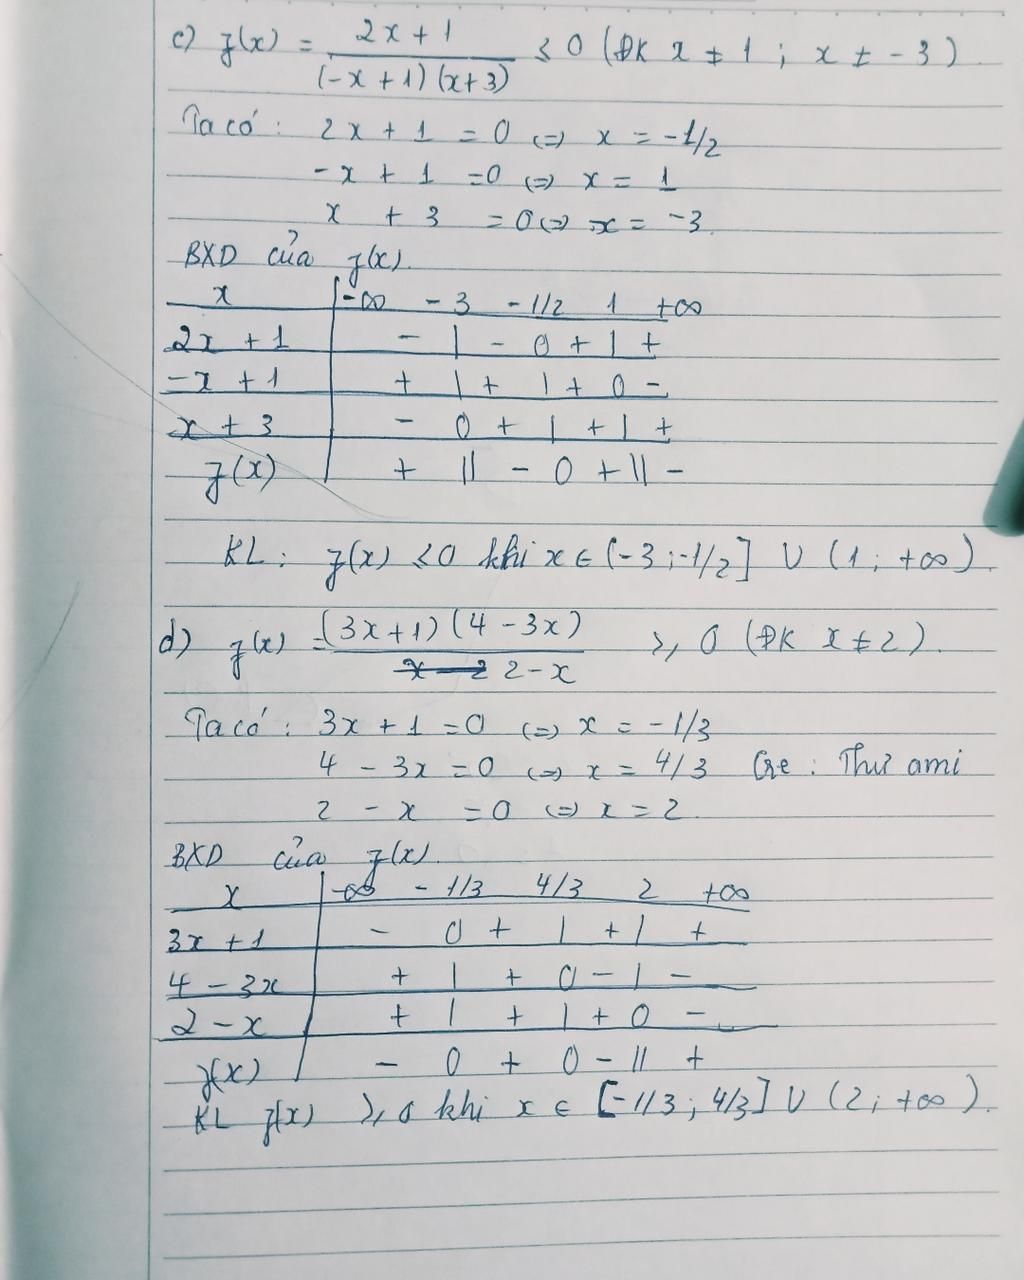 c) f(x) = (2x + 1)/((-x + 1)(x+3)) ≤ 0 (ĐK x ≠ 1 ; x ≠ -3)
Ta có : 2x + 1 = 0 <=> x = -1/2
-x + 1 = 0 <=> x = 1
x + 3 = 0 <=> x = -3.
BXD của f(x).
x | -∞ -3 -1/2 1 +∞
2x + 1 | - | - 0 + | +
-x + 1 | + | + | + 0 -
x + 3 | - 0 + | + | +
f(x) | + || - 0 + || -
KL : f(x) ≤ 0 khi x ∈ (-3 ; -1/2] ∪ (1 ; +∞).
d) f(x) = (3x+1)(4 - 3x)/(2-x) ≥ 0 (ĐK x ≠ 2).
Ta có : 3x + 1 = 0 <=> x = -1/3
4 - 3x = 0 <=> x = 4/3 Cre : Thư ami
2 - x = 0 <=> x = 2.
BXD của f(x).
x | -∞ -1/3 4/3 2 +∞
3x + 1 | - 0 + | + | +
4 - 3x | + | + 0 - | -
2 - x | + | + | + 0 -
f(x) | - 0 + 0 - || +
KL f(x) ≥ 0 khi x ∈ [-1/3 ; 4/3] ∪ (2 ; +∞).